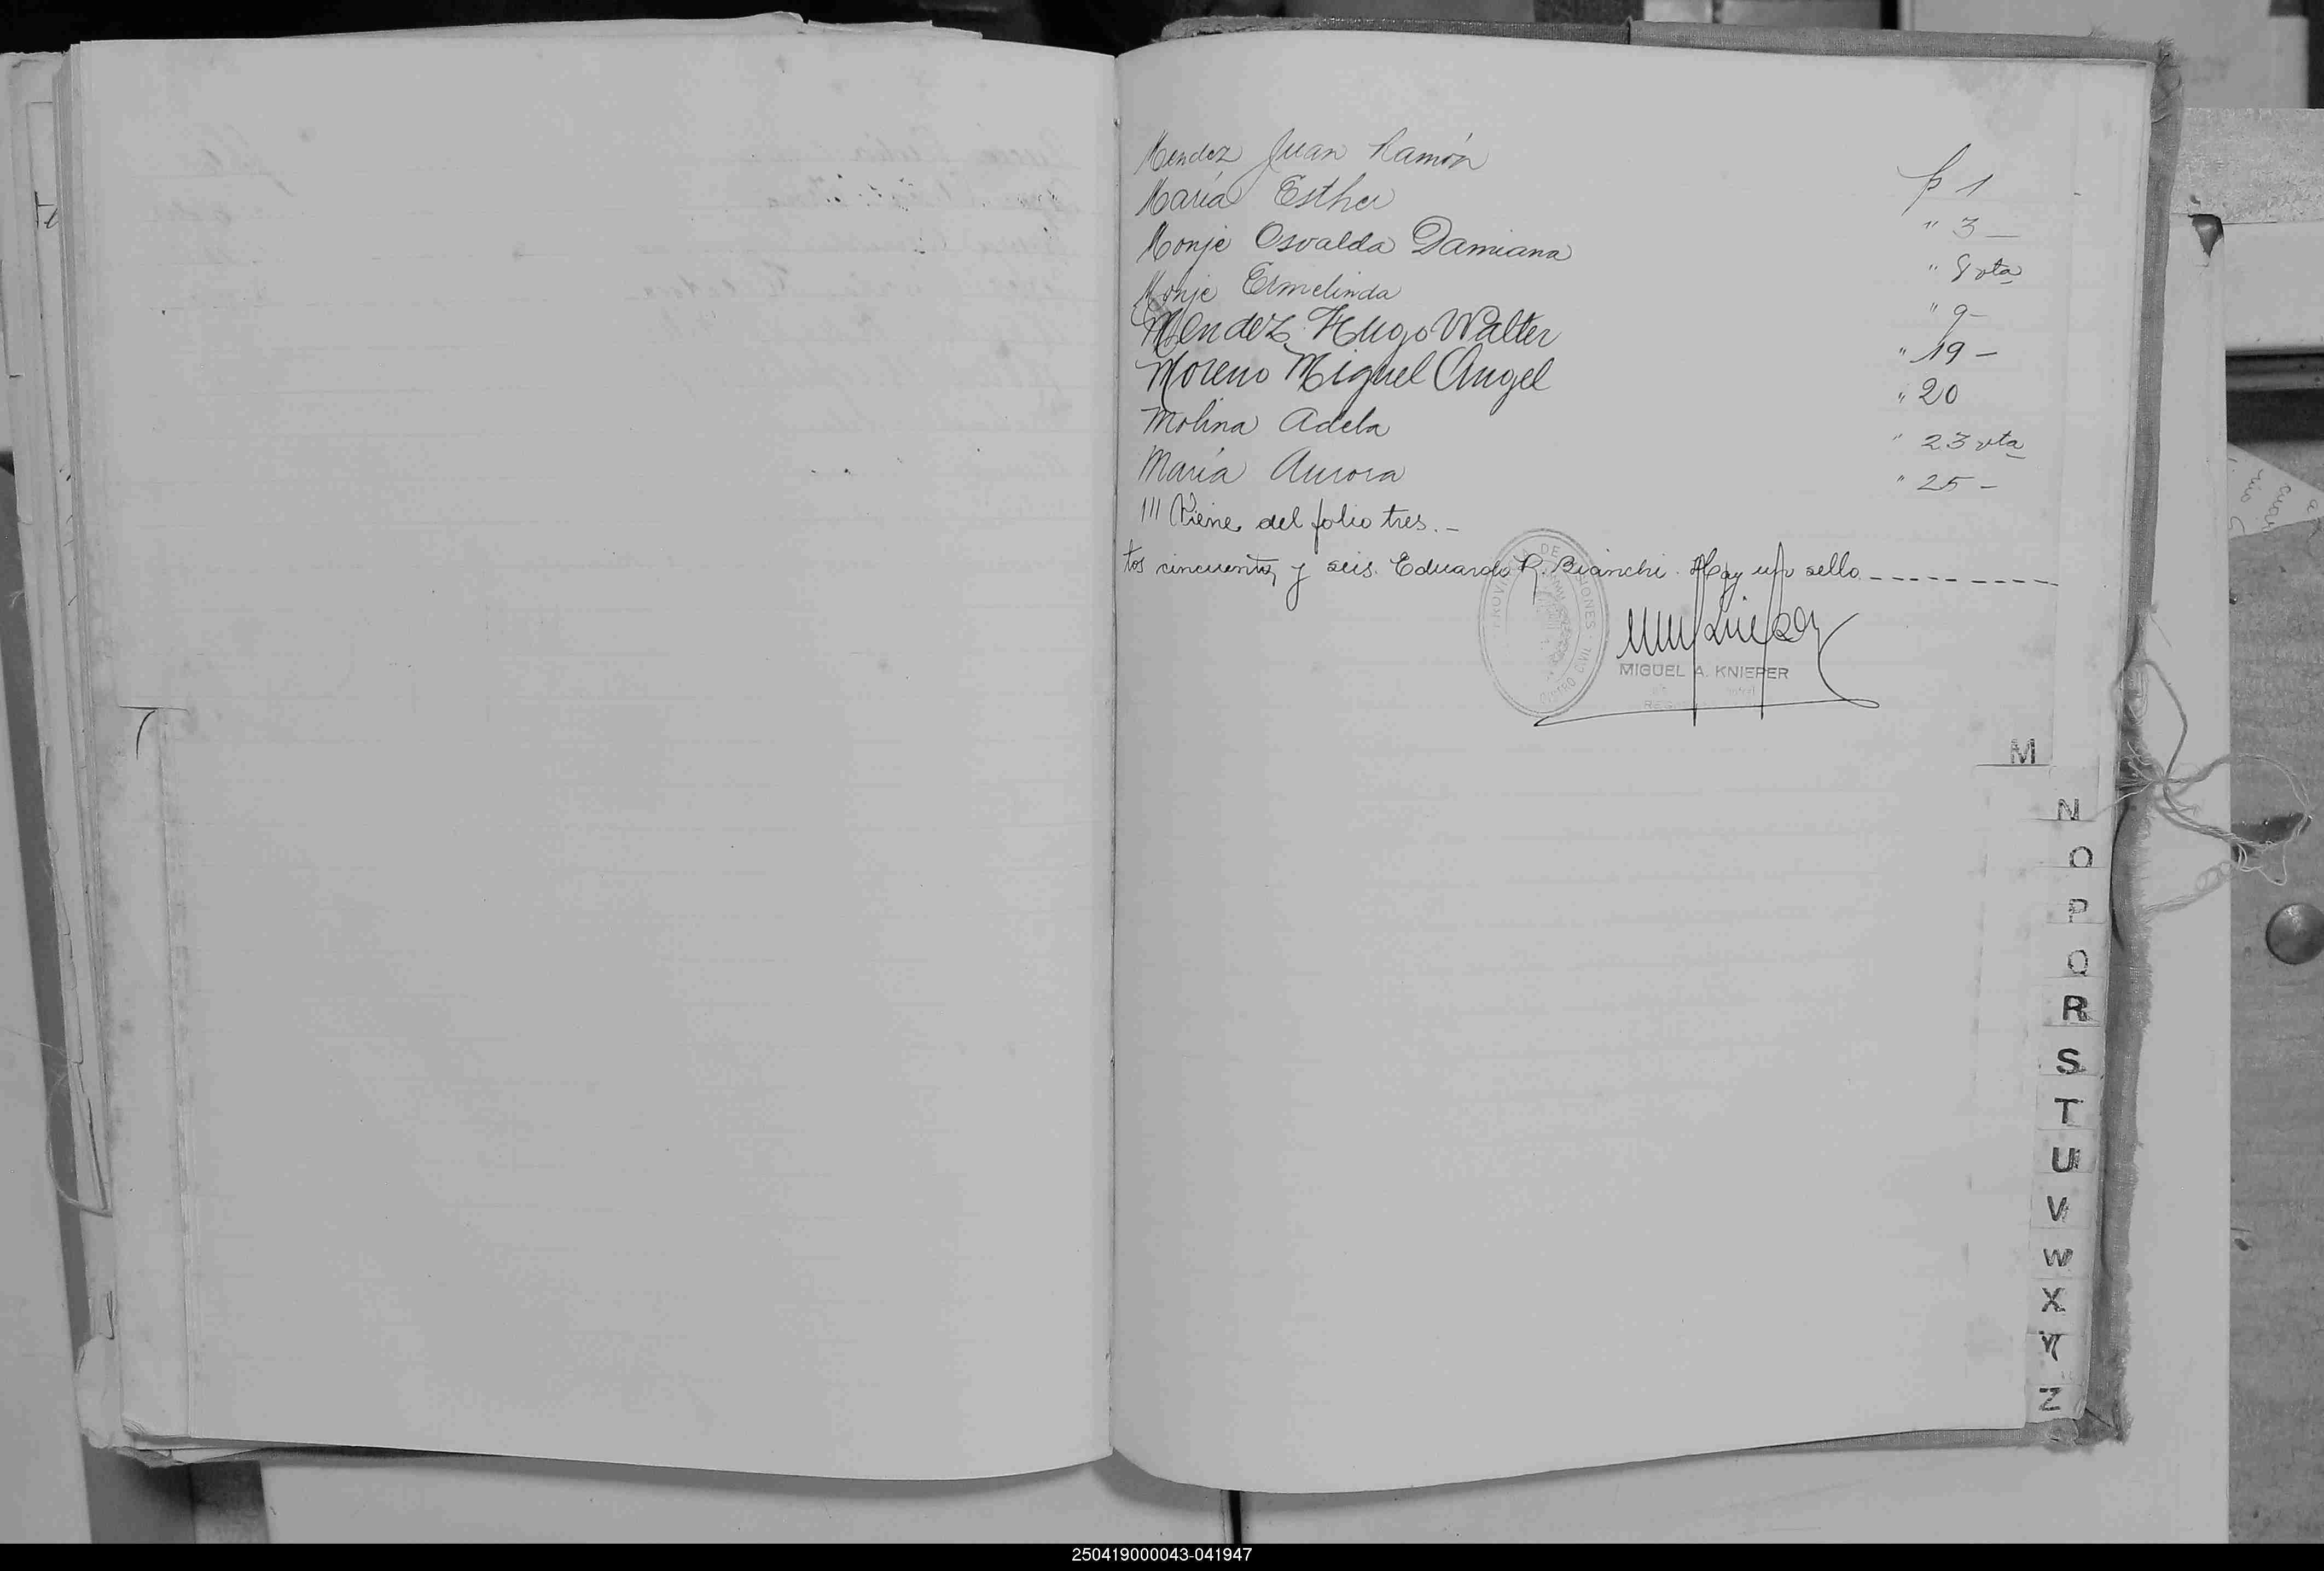 Mendez Juan Ramón f 1
María Esther " 3 —
Monje Osvalda Damiana " 8 vta
Monje Ermelinda " 9 —
Mendez Hugo Walter " 19 —
Moreno Miguel Angel " 20
Molina Adela " 23 vta
María Aurora " 25 —
/// Viene del folio tres. —
tos cincuenta y seis. Eduardo R. Bianchi. Hay un sello
PROVINCIA DE MISIONES
CIVIL
MIGUEL A. KNIEPER
M
N
O
P
Q
R
S
T
U
V
W
X
Y
Z
250419000043-041947